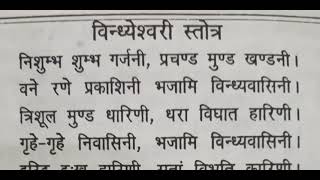 विन्ध्येश्वरी स्तोत्र
निशुम्भ शुम्भ गर्जनी, प्रचण्ड मुण्ड खण्डनी।
वने रणे प्रकाशिनी भजामि विन्ध्यवासिनी।
त्रिशूल मुण्ड धारिणी, धरा विघात हारिणी।
गृहे-गृहे निवासिनी, भजामि विन्ध्यवासिनी।